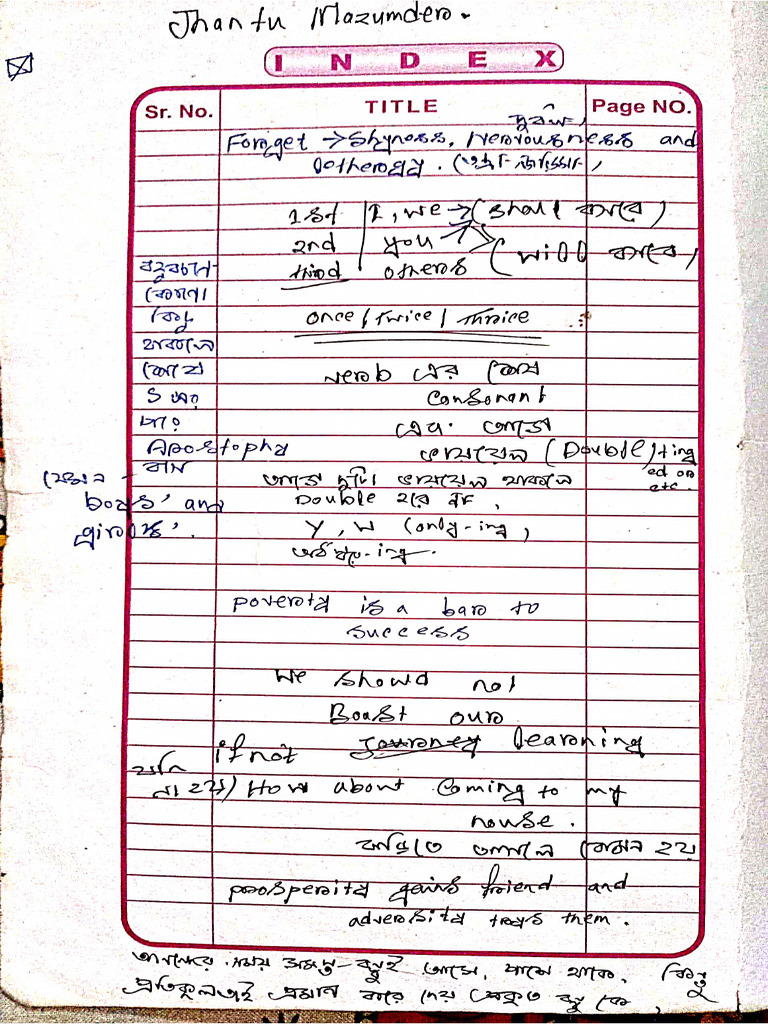 Jhantu Mazumder.
INDEX
Sr. No. TITLE Page NO.
Forget → Shyness, Nervousness and
1st I, we → (shall করবে)
2nd you (will করবে)
third others
বহুবচনে
কোনো
কিছু
থাকলে
শেষে
S এর
পরে
Apostophy
বসে
যেমন -
boys' and
girls'.
once / twice / thrice
verb এর শেষে
consonant
এবং আগে
ভাওয়েল (Double) + ing
ed or
etc.
আগে দুটো ভাওয়েল থাকলে
Double হবে না,
Y, W (only-ing)
poverty is a bar to
success
We should not
Boast our
if not learning
যদি
না হয়) How about coming to my
house.
বাড়িতে আসলে কেমন হয়
prosperity gains friend and
adversity trays them.
আনন্দের সময় অনেক বন্ধুই আসে, পাশে থাকে, কিন্তু
প্রতিকূলতাই প্রমান করে দেয় প্রকৃত বন্ধু কে,